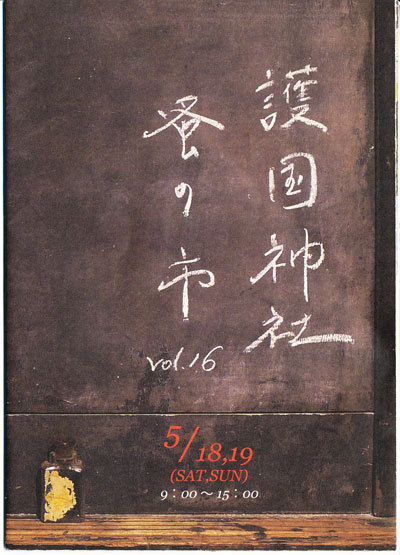 護国神社
蚤の市
vol.16
5/18,19
(SAT,SUN)
9:00〜15:00